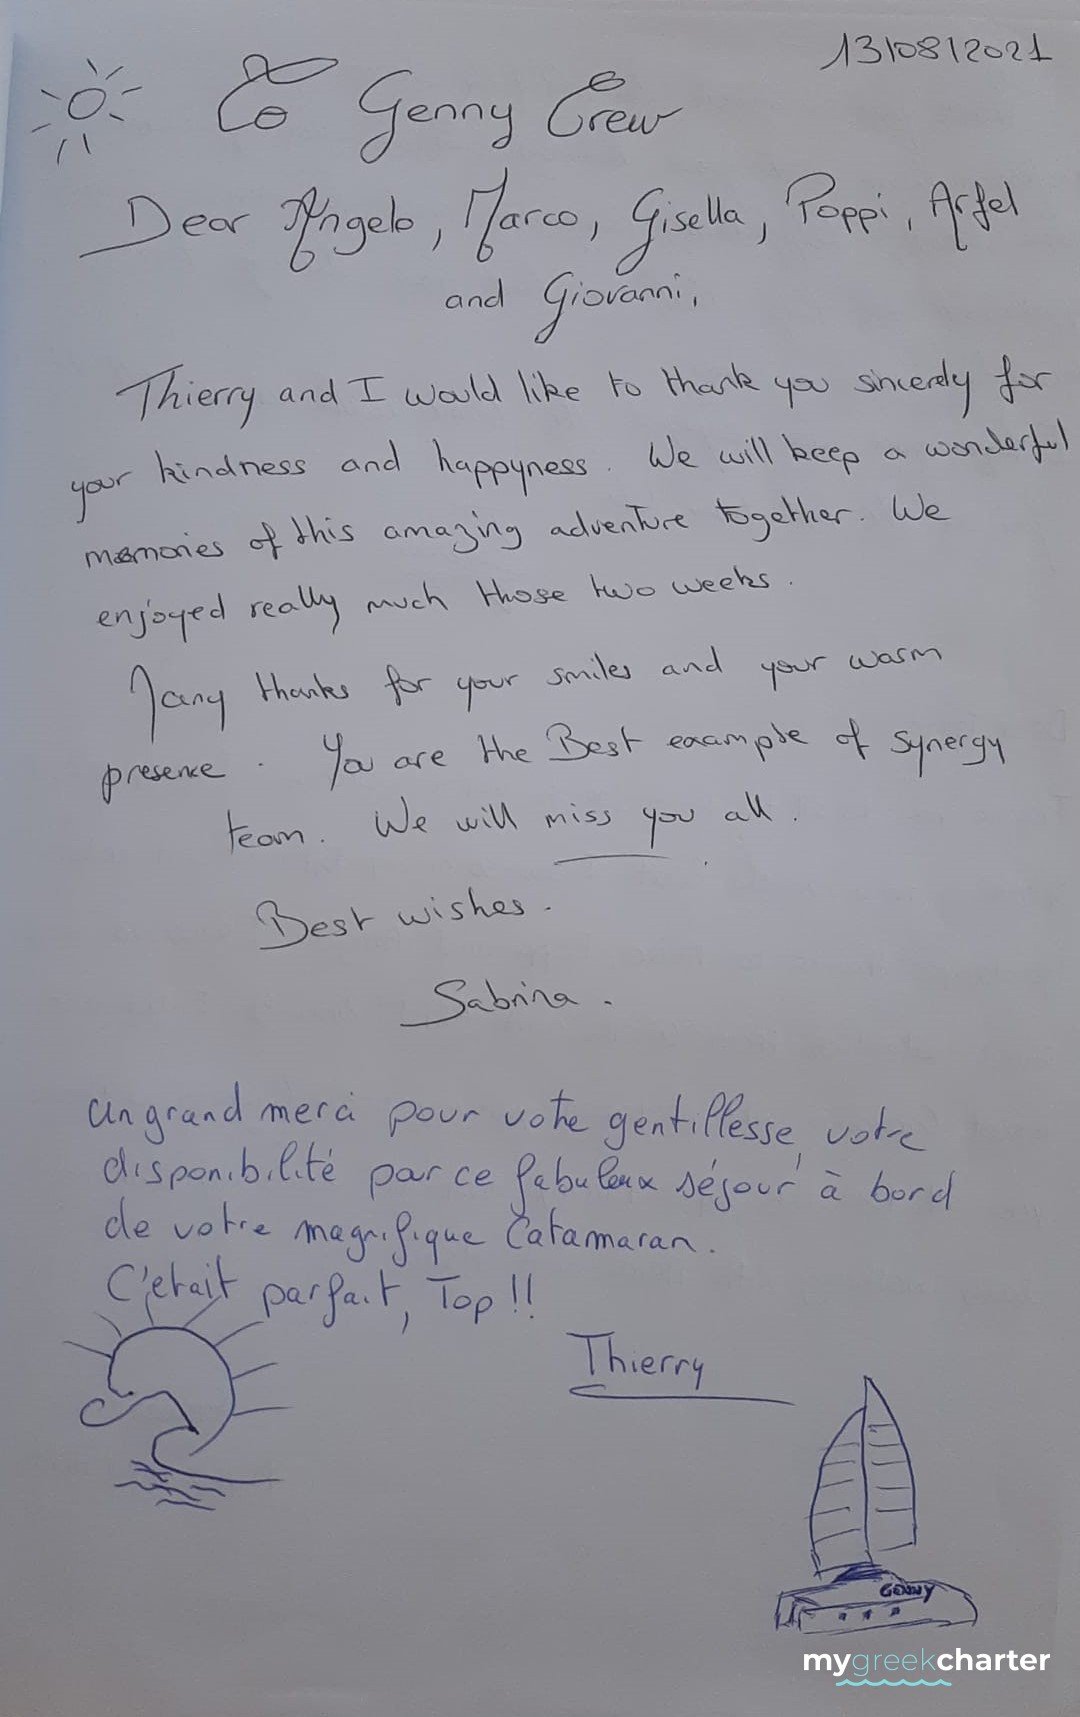 13/08/2021
To Genny Crew
Dear Angelo, Marco, Gisella, Poppi, Arfel
and Giovanni,
Thierry and I would like to thank you sincerely for
your kindness and happyness. We will keep a wonderful
memories of this amazing adventure together. We
enjoyed really much those two weeks.
Many thanks for your smiles and your warm
presence. You are the Best example of synergy
team. We will miss you all.
Best wishes.
Sabrina.
un grand merci pour votre gentillesse, votre
disponibilité par ce fabuleux séjour à bord
de votre magnifique Catamaran.
C'etait parfait, Top!!
Thierry
GENNY
mygreekcharter